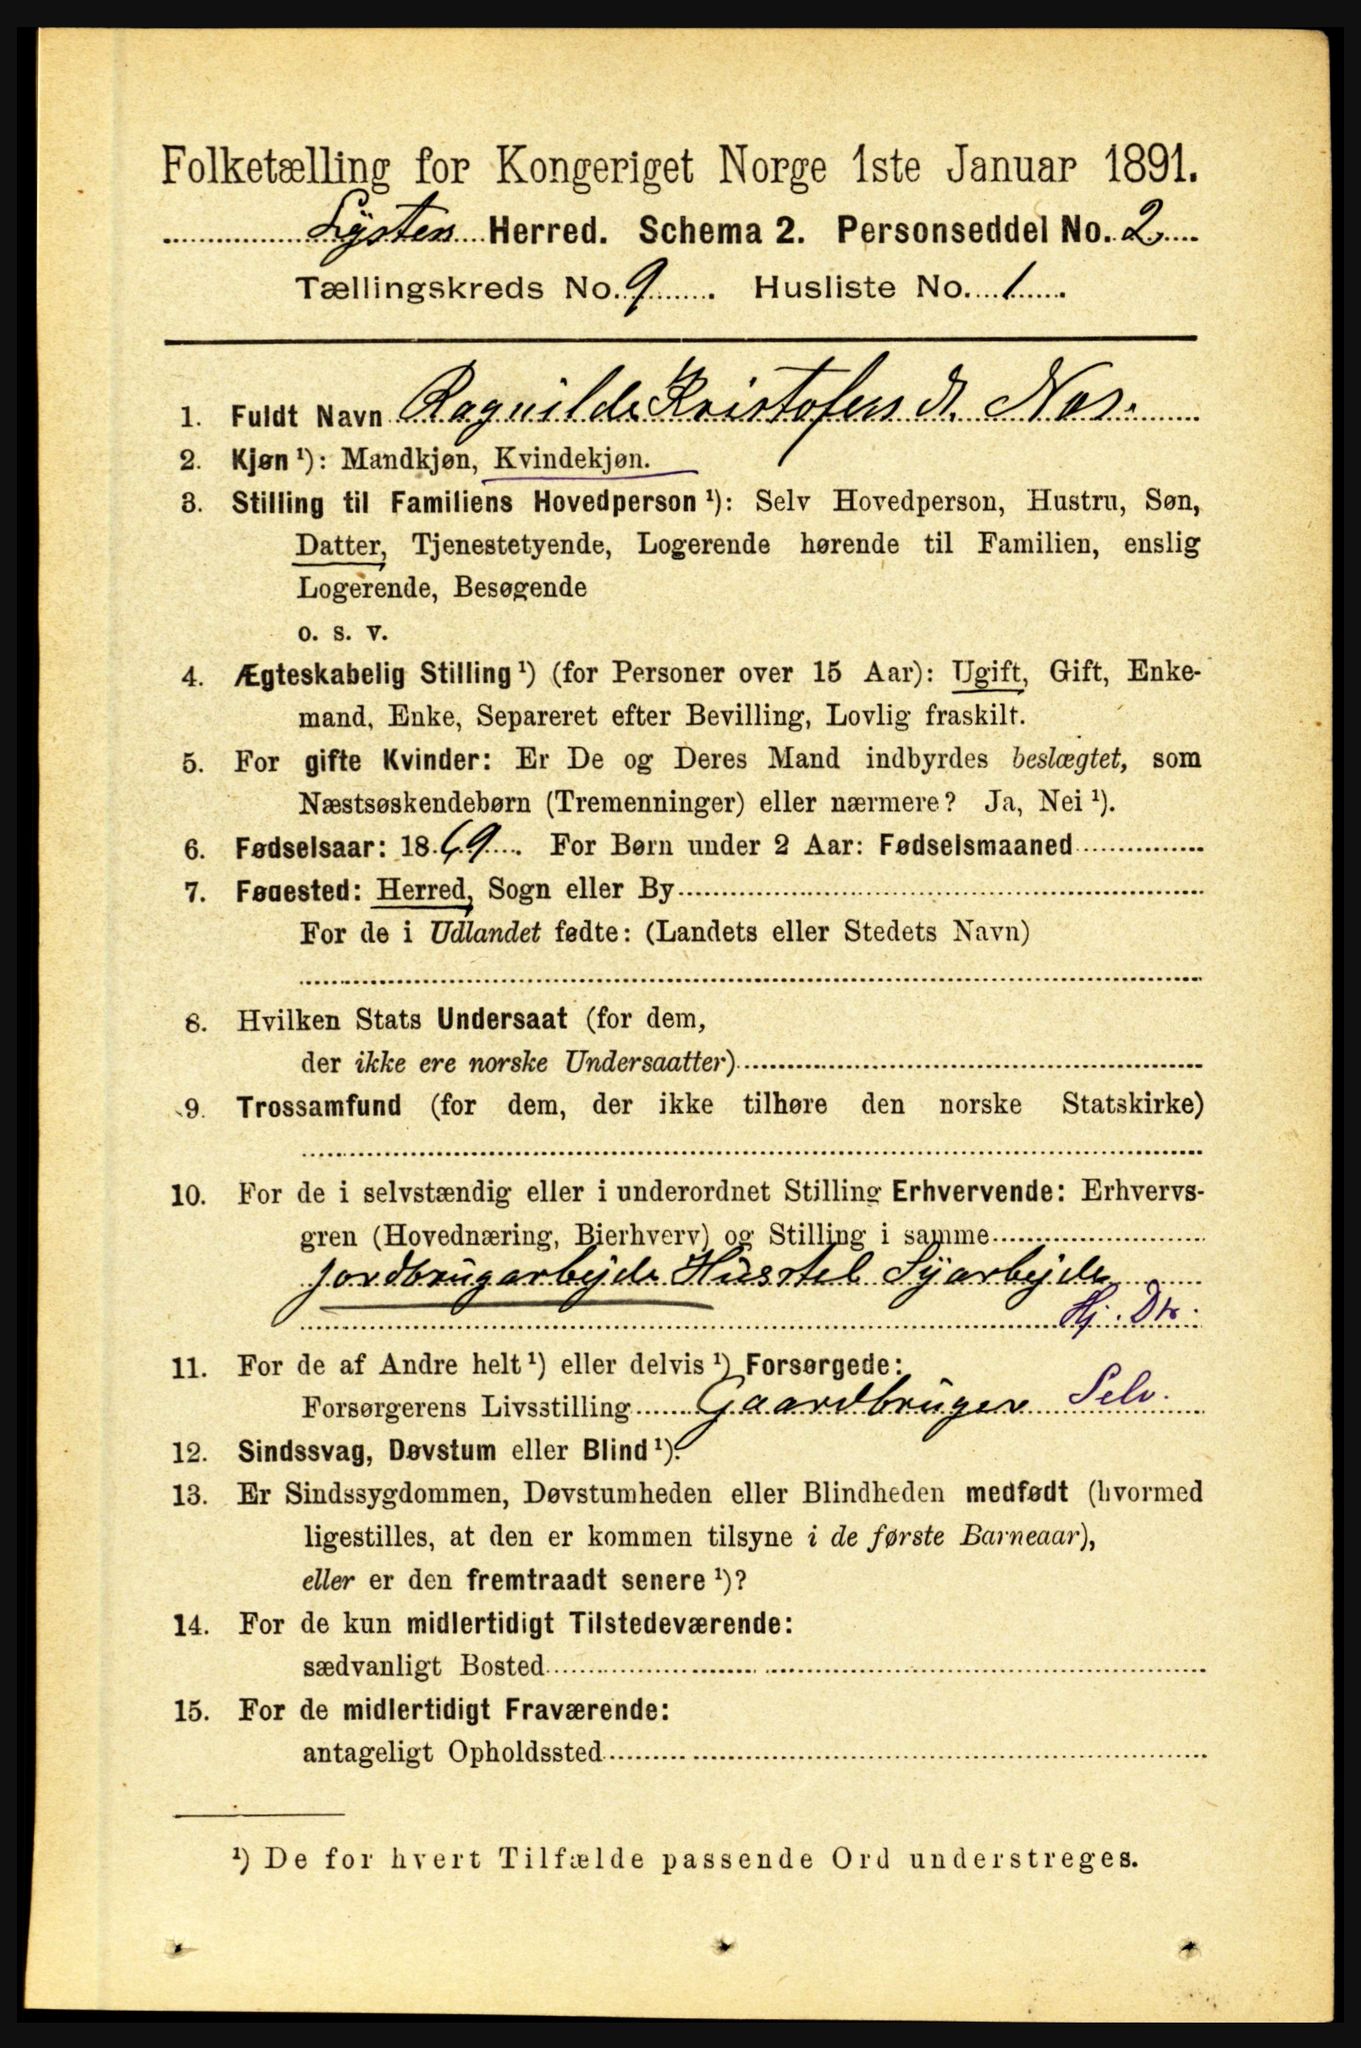 Folketælling for Kongeriget Norge 1ste Januar 1891.
Lyster Herred. Schema 2. Personseddel No. 2
Tællingskreds No. 9. Husliste No. 1.
1. Fuldt Navn Ragnilde Kristofers d. Nes.
2. Kjøn ¹): Mandkjøn, Kvindekjøn.
3. Stilling til Familiens Hovedperson ¹): Selv Hovedperson, Hustru, Søn,
Datter, Tjenestetyende, Logerende hørende til Familien, enslig
Logerende, Besøgende
o. s. v.
4. Ægteskabelig Stilling ¹) (for Personer over 15 Aar): Ugift, Gift, Enke-
mand, Enke, Separeret efter Bevilling, Lovlig fraskilt.
5. For gifte Kvinder: Er De og Deres Mand indbyrdes beslægtet, som
Næstsøskendebørn (Tremenninger) eller nærmere? Ja, Nei ¹).
6. Fødselsaar: 1869. For Børn under 2 Aar: Fødselsmaaned
7. Føøested: Herred, Sogn eller By
For de i Udlandet fødte: (Landets eller Stedets Navn)
8. Hvilken Stats Undersaat (for dem,
der ikke ere norske Undersaatter)
9. Trossamfund (for dem, der ikke tilhøre den norske Statskirke)
10. For de i selvstændig eller i underordnet Stilling Erhvervende: Erhvervs-
gren (Hovednæring, Bierhverv) og Stilling i samme
Jordbrugarbejde Husstel Syarbejde
Hj. Dtr.
11. For de af Andre helt ¹) eller delvis ¹) Forsørgede:
Forsørgerens Livsstilling Gaardbruger Selv.
12. Sindssvag, Døvstum eller Blind ¹).
13. Er Sindssygdommen, Døvstumheden eller Blindheden medfødt (hvormed
ligestilles, at den er kommen tilsyne i de første Barneaar),
eller er den fremtraadt senere ¹)?
14. For de kun midlertidigt Tilstedeværende:
sædvanligt Bosted
15. For de midlertidigt Fraværende:
antageligt Opholdssted
¹) De for hvert Tilfælde passende Ord understreges.